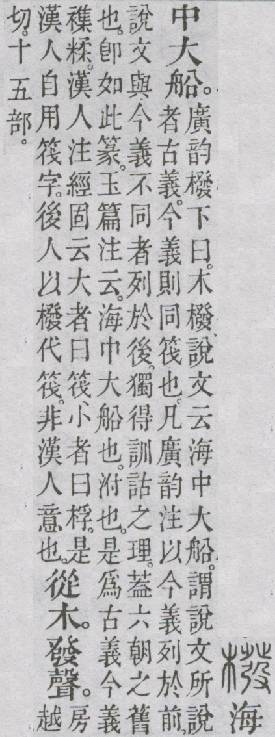 橃海
中大船。廣韵橃下曰。木橃。說文云海中大船。謂說文所說
者古義。今義則同筏也。凡廣韵注以今義列於前。
說文與今義不同者列於後。獨得訓詁之理。葢六朝之舊
也。卽如此篆。玉篇注云。海中大船也。泭也。是爲古義今義
襍糅。漢人注經固云大者曰筏。小者曰桴。是
漢人自用筏字。後人以橃代筏。非漢人意也。從木。發聲。房越
切。十五部。